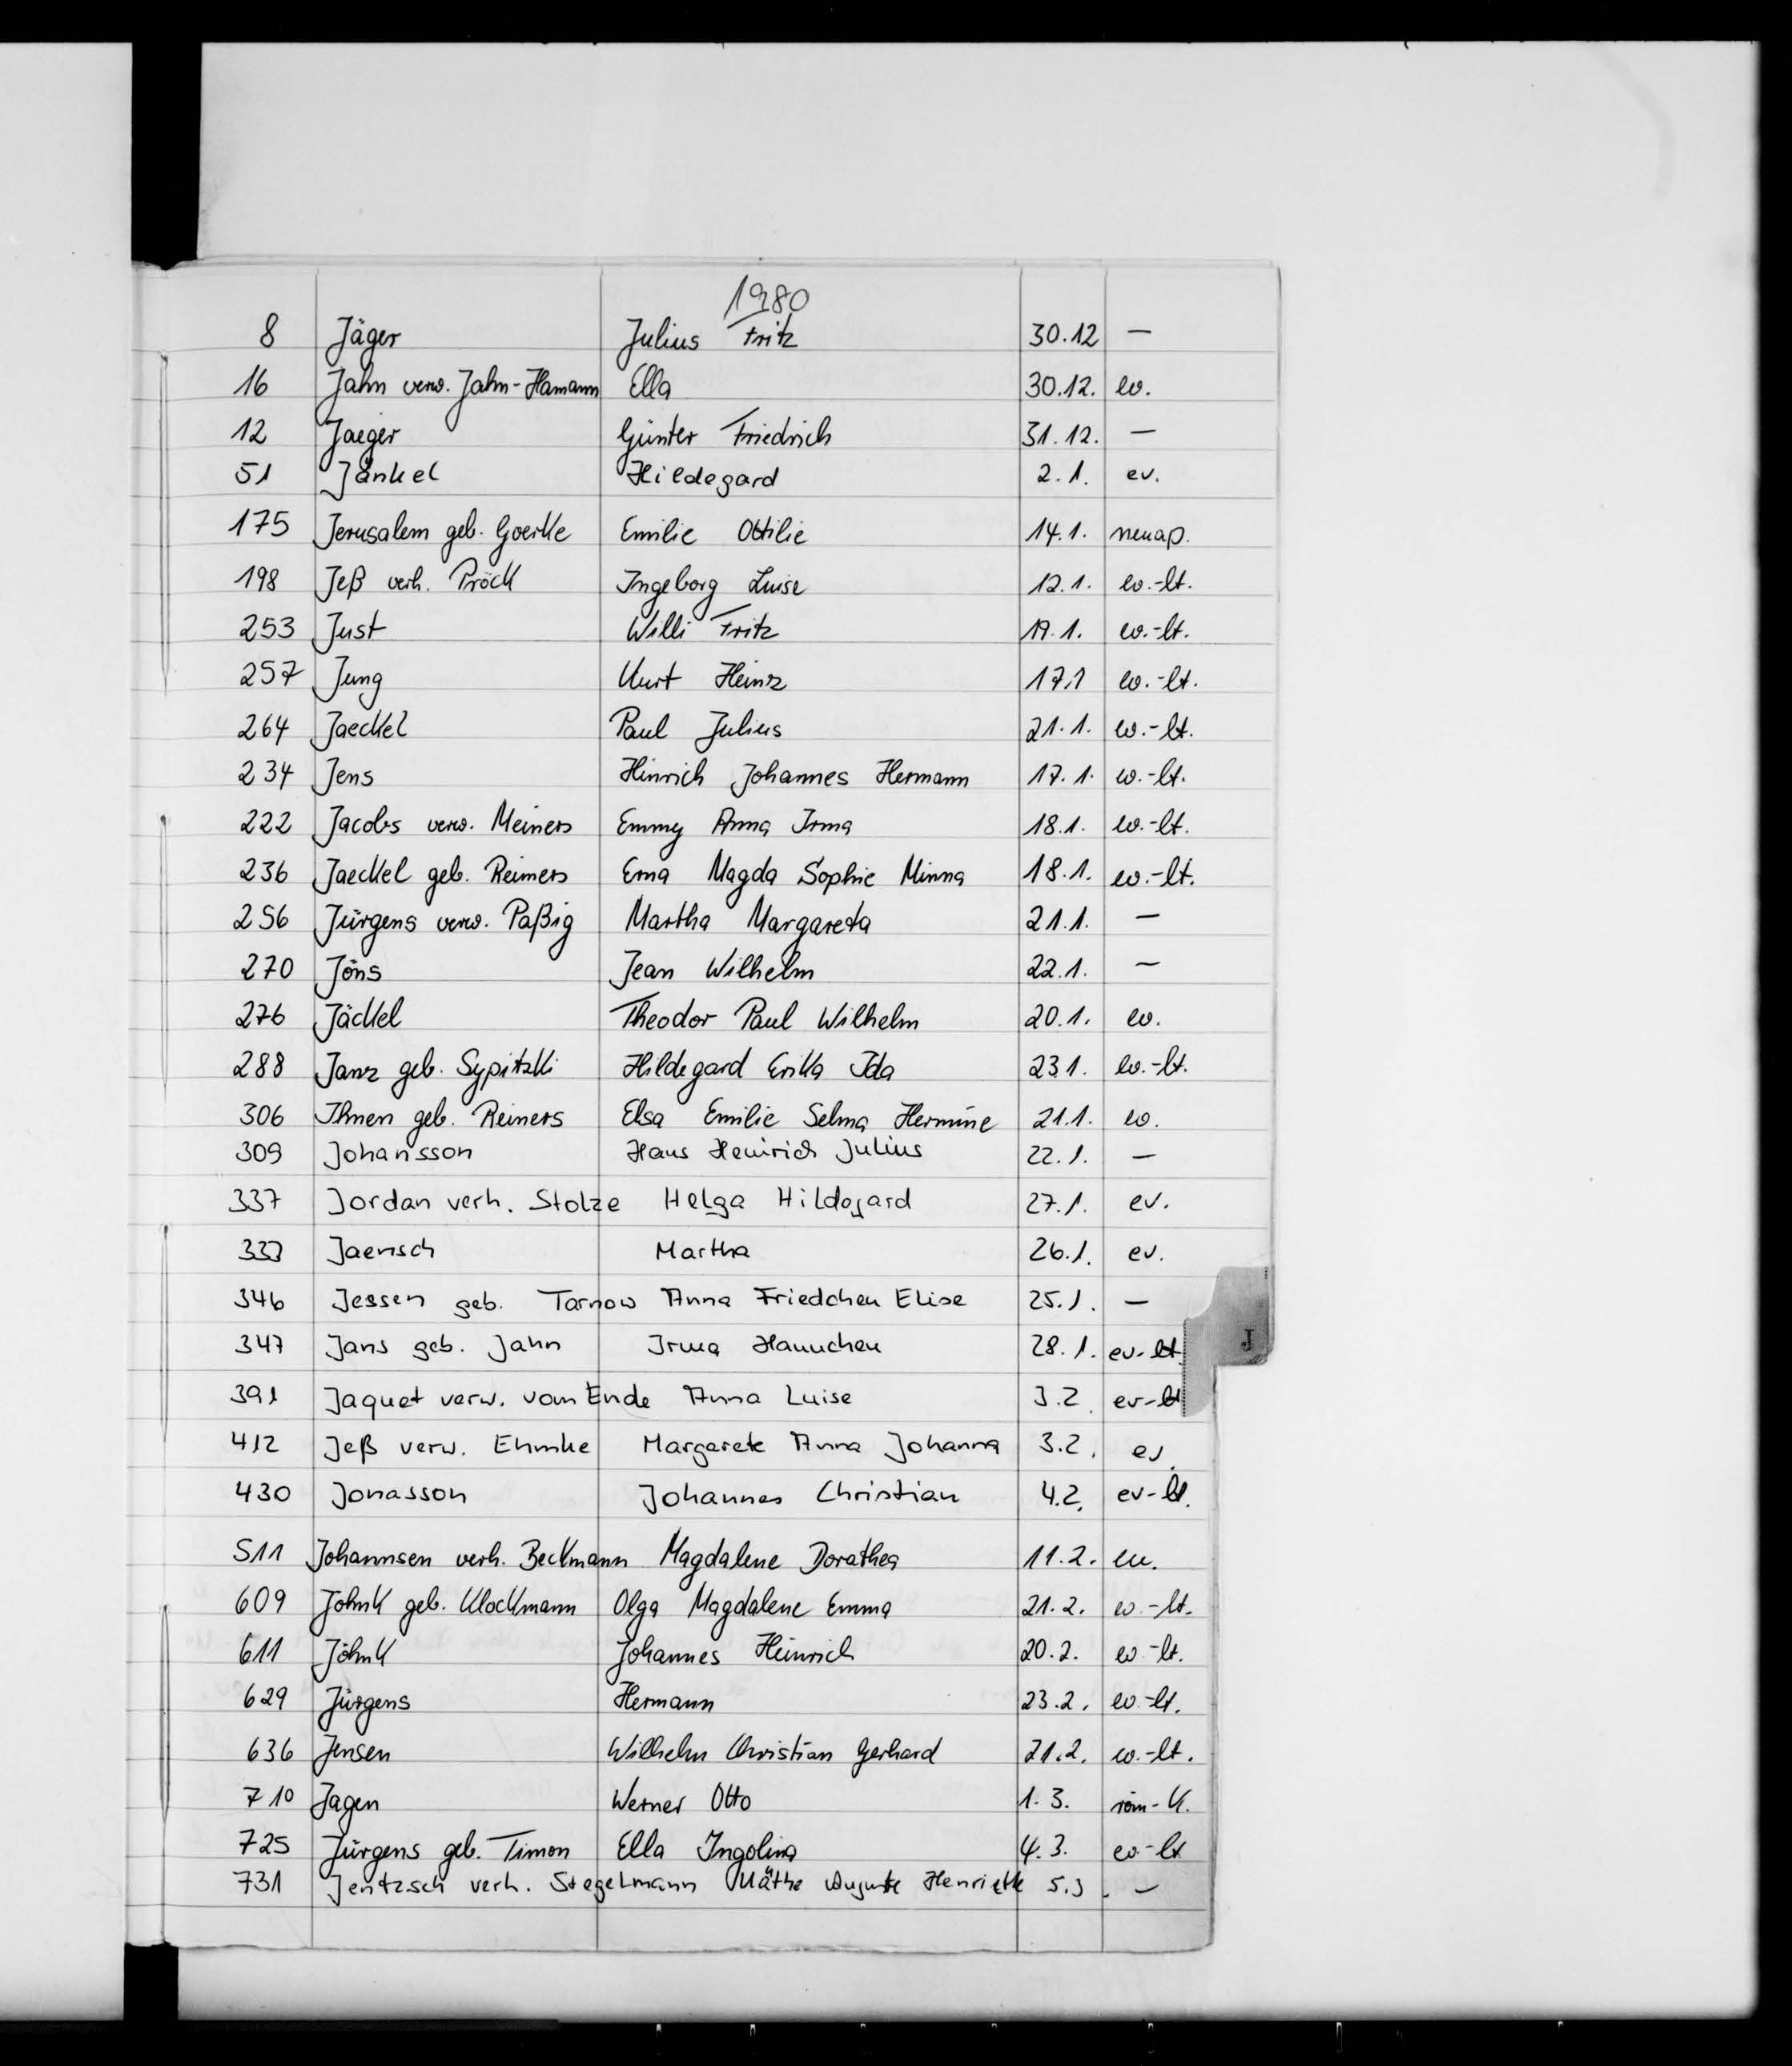 1980
8 Jäger Julius Fritz 30.12 —
16 Jahn verw. Jahn-Hamann Ella 30.12. ev.
12 Jaeger Günter Friedrich 31.12. —
51 Jänkel Hildegard 2.1. ev.
175 Jerusalem geb. Goerke Emilie Ottilie 14.1. neuap.
198 Jeß verh. Pröck Ingeborg Luise 12.1. ev.-lt.
253 Just Willi Fritz 19.1. ev.-lt.
257 Jung Kurt Heinz 17.1 ev.-lt.
264 Jaeckel Paul Julius 21.1. ev.-lt.
234 Jens Hinrich Johannes Hermann 17.1. ev.-lt.
222 Jacobs verw. Meiners Emmy Anna Irma 18.1. ev.-lt.
236 Jaeckel geb. Reimers Erna Magda Sophie Minna 18.1. ev.-lt.
256 Jürgens verw. Paßig Martha Margareta 21.1. —
270 Jöns Jean Wilhelm 22.1. —
276 Jäckel Theodor Paul Wilhelm 20.1. ev.
288 Janz geb. Sypitzki Hildegard Erika Ida 23.1. ev.-lt.
306 Ihnen geb. Reiners Elsa Emilie Selma Hermine 21.1. ev.
309 Johansson Hans Heinrich Julius 22.1. —
337 Jordan verh. Stolze Helga Hildegard 27.1. ev.
333 Jaensch Martha 26.1. ev.
346 Jessen geb. Tarnow Anna Friedchen Elise 25.1. —
347 Jans geb. Jahn Irma Hannchen 28.1. ev-lt.
J
391 Jaquet verw. vom Ende Anna Luise 3.2. ev-lt
412 Jeß verw. Ehmke Margarete Anna Johanna 3.2. ev.
430 Jonasson Johannes Christian 4.2. ev-lt.
511 Johannsen verh. Beckmann Magdalene Dorathea 11.2. ev.
609 Johnk geb. Klockmann Olga Magdalene Emma 21.2. ev.-lt.
611 Jöhnk Johannes Heinrich 20.2. ev-lt.
629 Jürgens Hermann 23.2. ev.-lt.
636 Jensen Wilhelm Christian Gerhard 21.2. ev.-lt.
710 Jagen Werner Otto 1.3. röm-k.
725 Jürgens geb. Timon Ella Ingolina 4.3. ev-lt
731 Jentzsch verh. Stegelmann Käthe Auguste Henriette 5.3. —